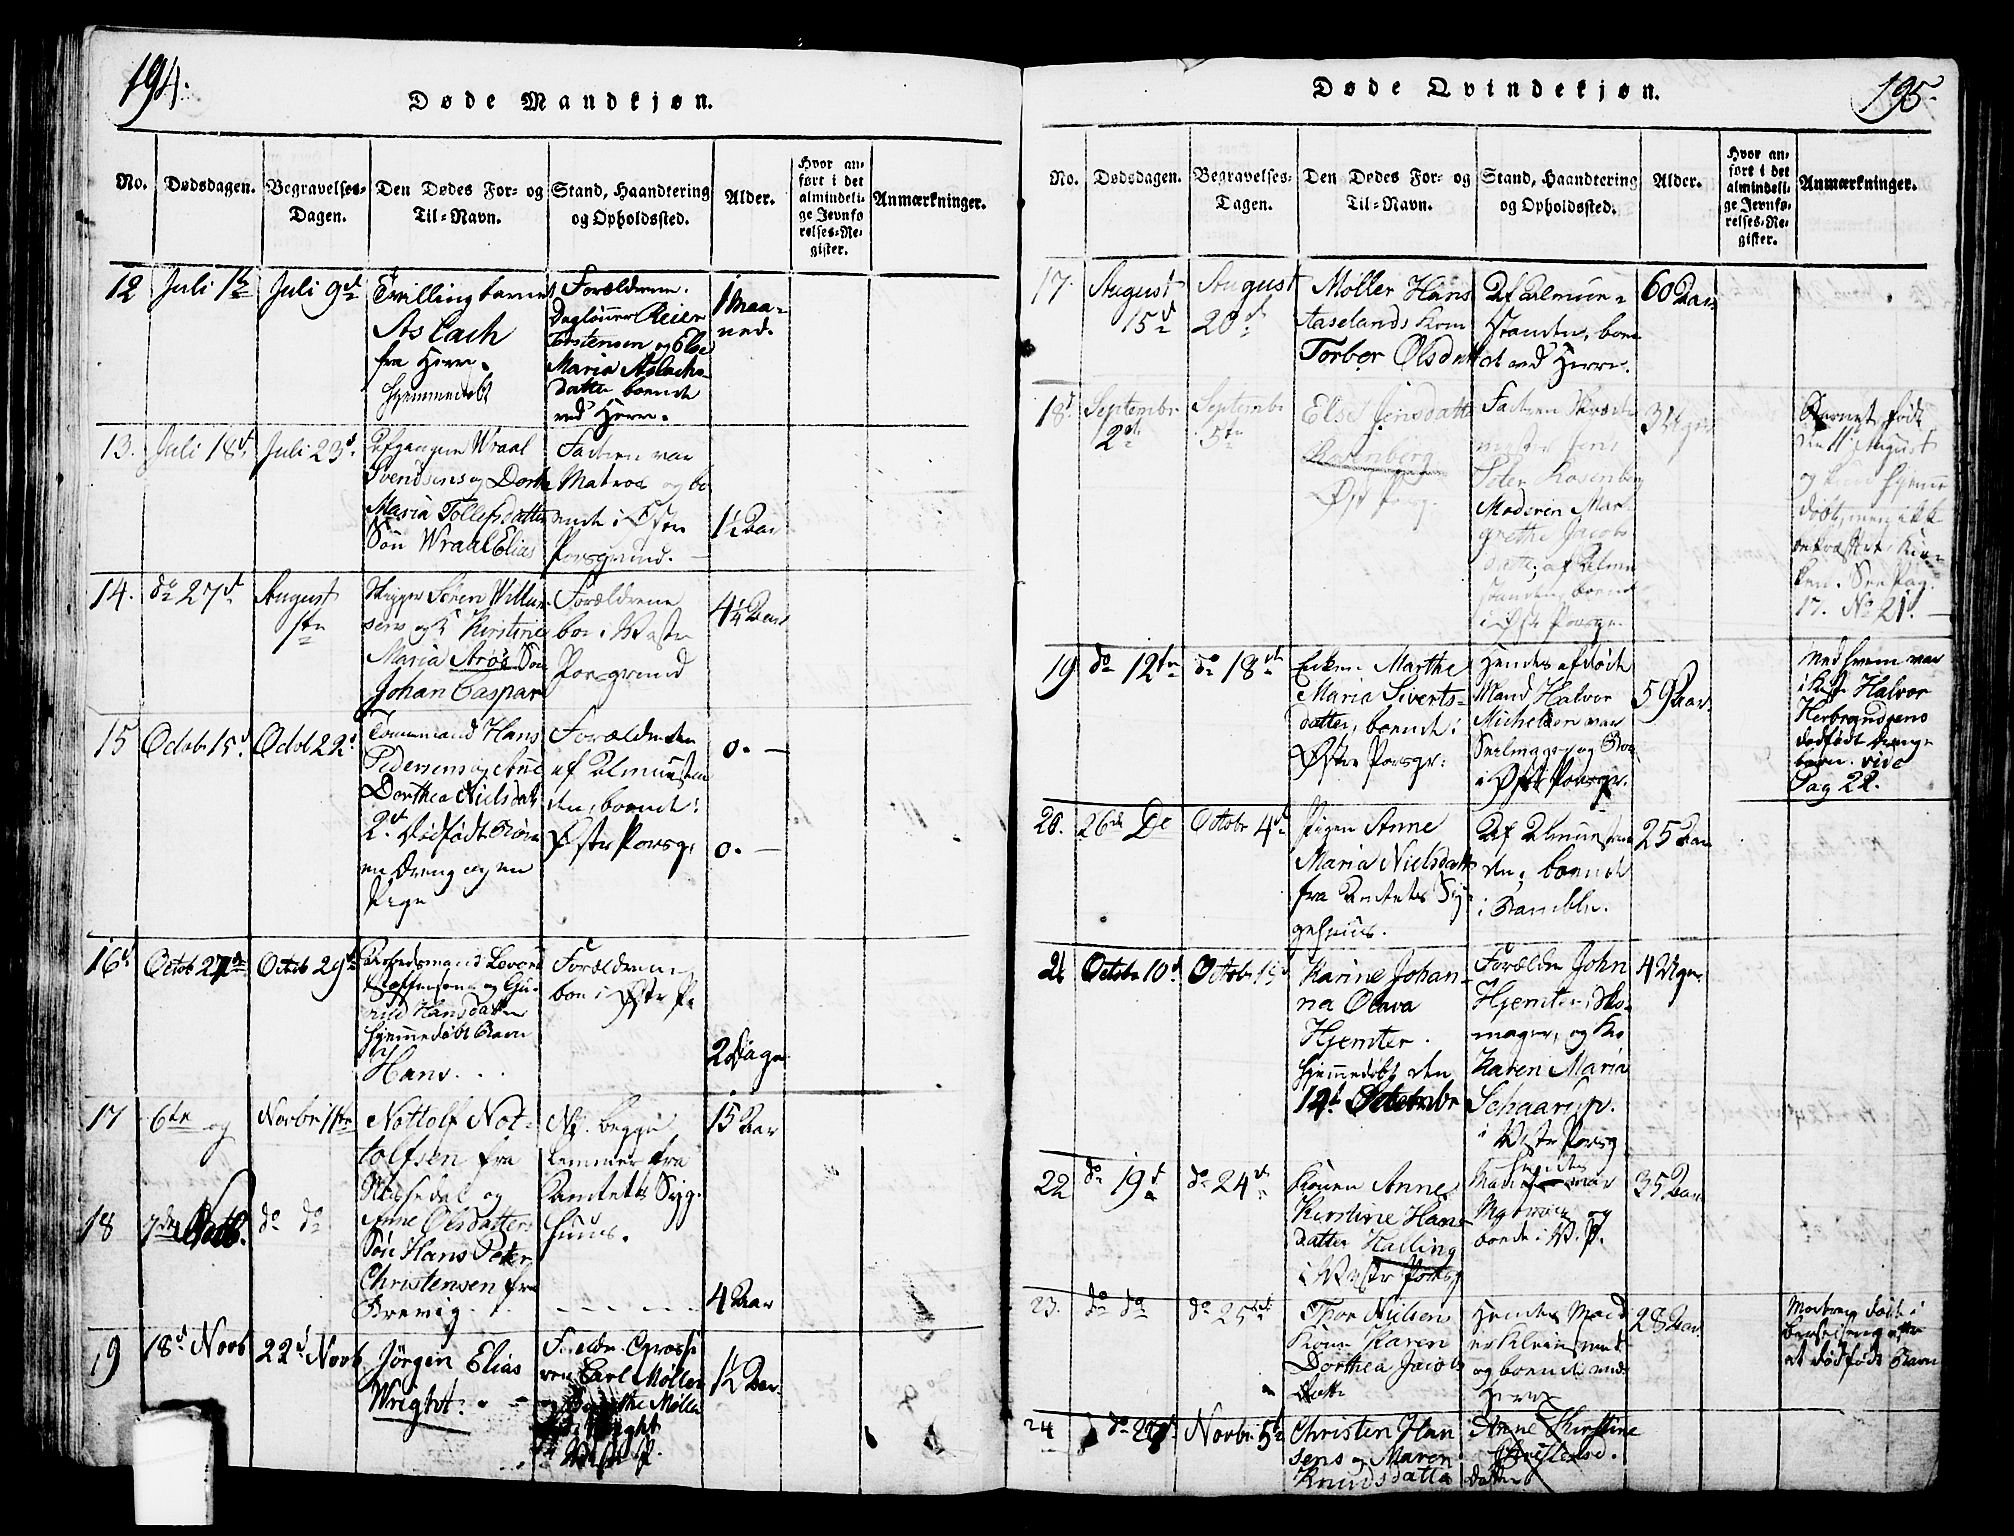 194.
Døde Mandkjøn.
No.
Dødsdagen.
Begravelses-
Dagen.
Den Dødes For- og
Til-Navn.
Stand, Haandtering
og Opholdssted.
Alder.
Hvor an-
ført i det
almindeli-
ge Jevnfø
relses-Re-
gister.
Anmærkninger.
12
Juli 1ste
Juli 9de
Tvillingbarnet
Aslach
fra Herre.
hjemmedøbt
Forældrene.
Dagløner Reier
Torstensen og Else
Maria Aslachs-
datter boende
ved Herre.
1 Maa-
ned.
13.
Juli 18d.
Juli 23d.
Afgangne Wraal
Svendsens og Dorthe
Maria Tollefsdatter
Søn Wraal Elias
Faderen var
Matros og bo
ende i Østre
Porsgrund.
1½ Aar
14.
do 27d.
August
1ste
Skipper Søren Willum
sens og Kirstine
Maria Arøe Søn
Johan Caspar
Forældrene
boe i Vestre
Porsgrund
4¼ Aar
15
Octobr 15d
Octob 22d
Tømmermand Hans
Pedersens og Ane
Dorthea Nielsdatt.
2de Dødfødte Børn
en Dreng og en
Pige
Forældrene
af Almuestan
den, boende i
Østre Porsgr.
0. —
0. —
16d.
Octob 27de
Octob 29de
Hansdatter
hjemmedøbt Barn
Hans. . .
Forældrene
boe i Østre P.
2 Dage
17
6te og
Novbr 11te
Nottolf Not-
tolfsen fra
Nissedal og
No. begge
Lemmer fra
Amtets Syge-
huus.
15 Aar
18
7de Novb.
do do
Anne Olsdatters
Søn Hans Peter
Christensen fra
Brevig.
4 Aar
19
18d Novb
22d Novb
Jørgen Elias
Wright.
Carl Møller
og Møller
Wright
1½ Aar.
195.
Døde Qvindekjøn.
No.
Dødsdagen.
Begravelses-
Dagen.
Den Dødes For- og
Til-Navn.
Stand, Haandtering
og Opholdssted.
Alder.
Hvor an-
ført i det
almindeli-
ge Jevnfø-
relses-Re-
gister.
Anmærkninger.
17.
August
15d
August
20d.
Møller Hans
Aaselands Kone
Torbør Olsdatt
Af Almue-
Standen, boen
de ved Herre.
60 Aar
18d.
Septembr
2de
Septembr
5te
Else Jensdatter
Rosenberg
Østr Porsg.
Faderen
Jens
Peter Rosenberg
Moderen Mar-
grethe Jacobs
datter, af Almue
standen, boende
i Østr Porsgr.
3 Uger
Barnet født
den 11 August
og kun hjemme
døbt, men ikke
See Pag.
17. No 21.
19
do 12te
do 18de
Enken Marthe
Maria Siverts-
datter, boende i
Østre Porsgr:
Hendes afdøde
Mand Halvor
Michelsen var
Seilmager og Boe
i Østr Porsgr.
59 Aar.
ned hvem var
i Kiste Halvor
Herbrandsens
dødfødt Drenge
barn. vide
Pag 22.
20.
26de De
Octobr 4de
Pigen Anne
Maria Nielsdatt.
fra Amtets Sy-
gehuus.
Af Almuestan
den, boende
i Bamble.
25 Aar
21
Octobr 10d
Octobr 15d
Karine Johan-
na Olava
Hjemter.
hjemmedøbt den
12t Octembr
Forældre John
Hjemter, Sko-
mager, og Ko
Karen Maria
Schaarup.
i Vestr Porsg.
4 Uger
22
do 19d
do 24de
Konen Anne
Kirstine Hans
datter Halling
i Vestr Porsg
hendes
Mand var
Matros og
boede i V. P.
35 Aar
23.
do do
do 25de
Thor Nielsens
Kone Karen
Dorthea Jacobs
Datter
Hendes Mand
og boende ved
Herre
28 Aar.
Moderen døde i
Barselseng efter
et dødfødt Barn
24
do 27d.
Novbr 5te
Christen Han
sens og Maren
Knudsdatter
Anne Kirstine
Christense.
Datter